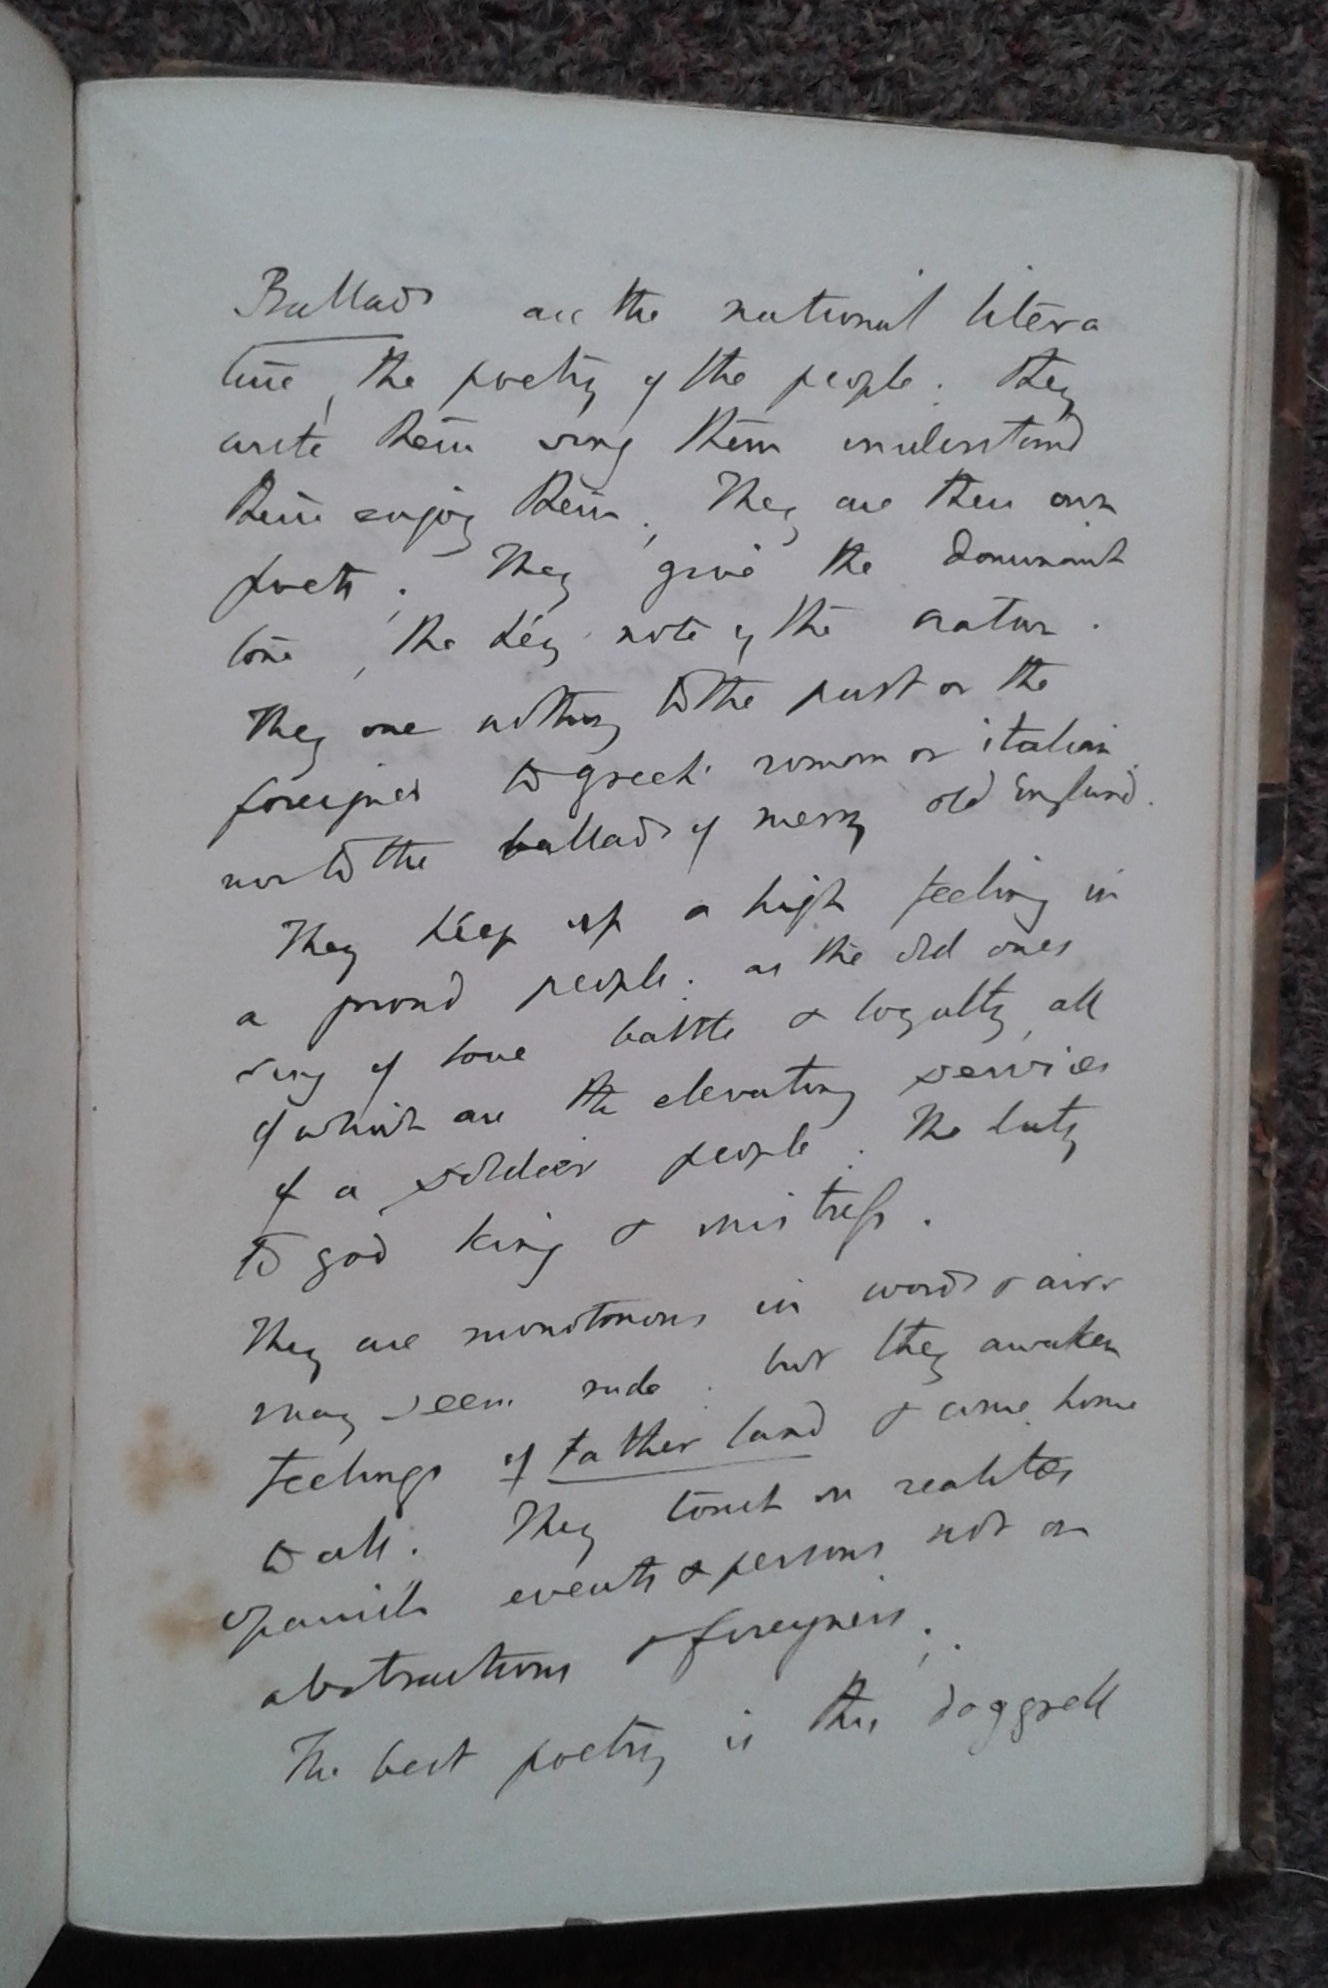 Ballads are the national litera
ture, the poetry of the people. they
write them sing them understand
them enjoy them, They are their own
poets. They give the dominant
tone, the key note of the nation.
They owe nothing to the past or the
foreigner to greek roman or italian
nor to the ballads of merry old England.
They keep up a high feeling in
a proud people. as the old ones
sing of love battle & loyalty, all
of which are the elevating services
of a soldier people. The duty
to god king & mistress.
They are monotonous in words & airs
may seem rude. but they awaken
feelings of father land & come home
to all. They touch on realities
spanish events & persons not on
abstractions & foreigners.
The best poetry is this doggrell